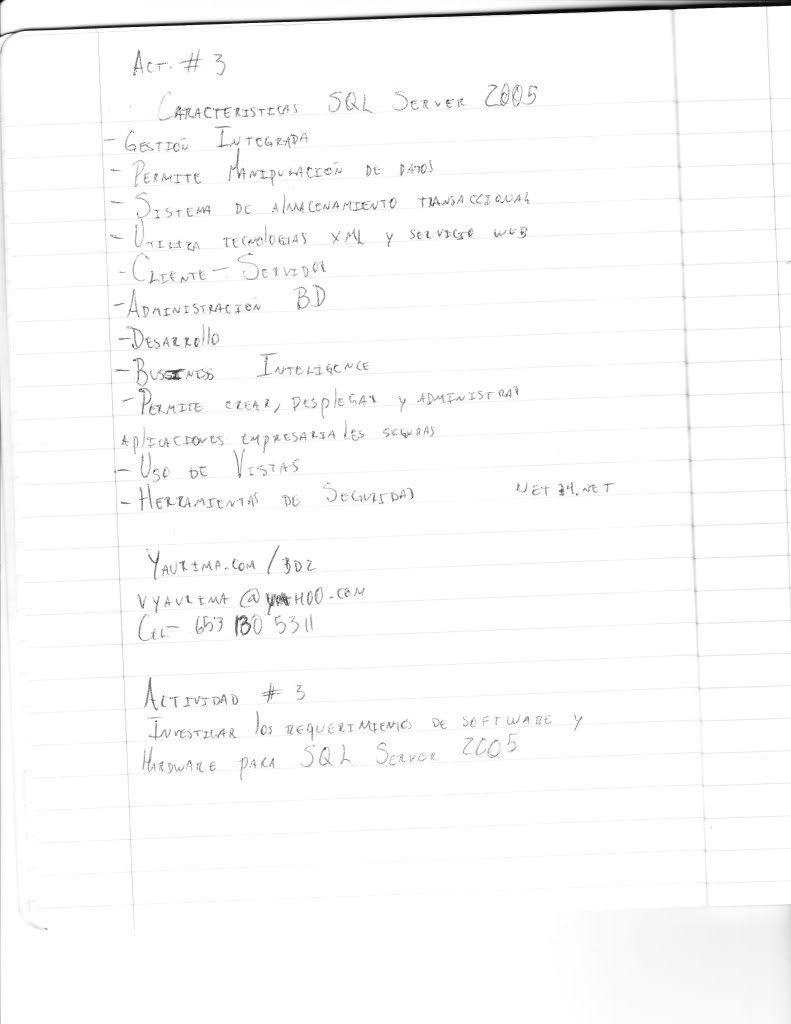 Act. # 3
Caracteristicas SQL Server 2005
- Gestión Integrada
- Permite Manipulación de datos
- Sistema de almacenamiento transaccional
- Utiliza tecnologias XML y servicio web
- Cliente - Servidor
- Administración BD
- Desarrollo
- Bussiness Inteligence
- Permite crear, desplegar y administrar
aplicaciones empresariales seguras
- Uso de Vistas
- Herramientas de Seguridad
Yaurima.com/BD2
vyaurima@yahoo.com
Cel- 653 130 5311
Actividad # 3
Investigar los requerimientos de software y
Hardware para SQL Server 2005